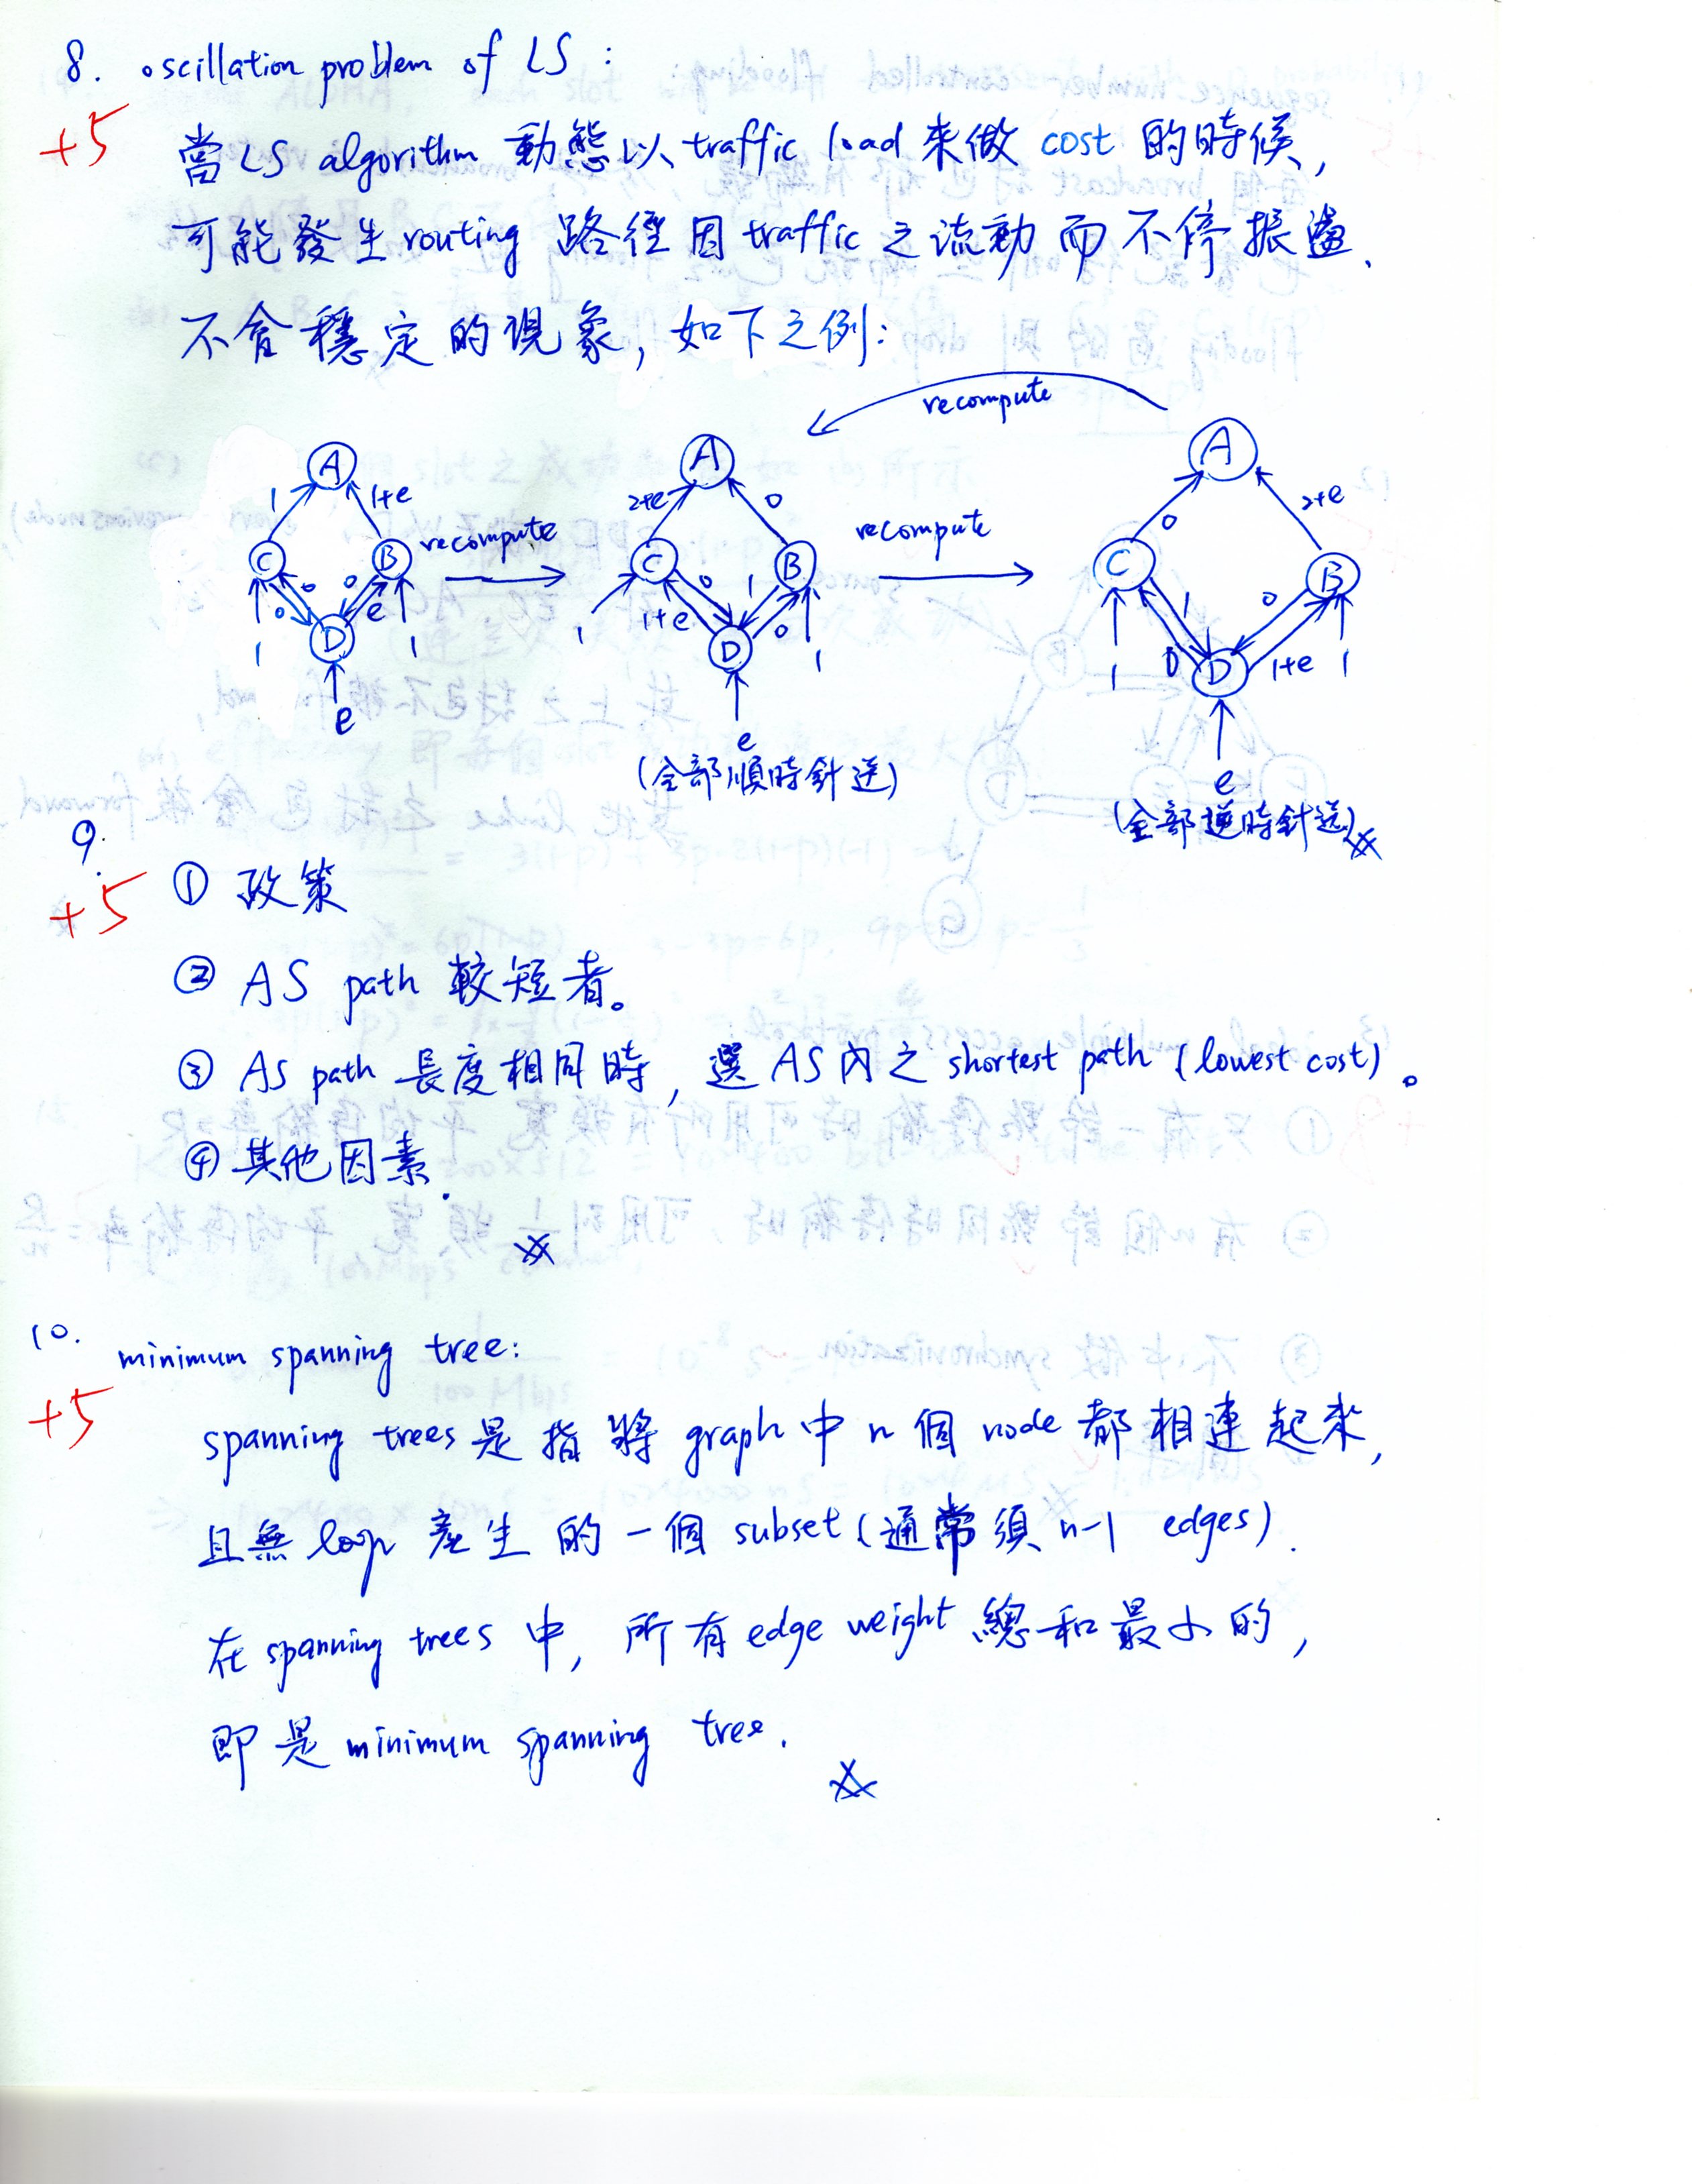 8. oscillation problem of LS :
+5
當 LS algorithm 動態以 traffic load 來做 cost 的時候,
可能發生 routing 路徑因 traffic 之流動而不停振盪.
不會穩定的現象, 如下之例:
recompute
A
1
1+e
C
B
0
0
0
e
D
1
1
e
recompute
A
2+e
0
C
B
0
1
1+e
0
D
1
1
e
(全部順時針送)
recompute
A
0
2+e
C
B
1
0
0
1+e
D
1
1
e
(全部逆時針送)
9.
+5
① 政策
② AS path 較短者。
③ AS path 長度相同時, 選 AS 內之 shortest path (lowest cost)。
④ 其他因素.
10. minimum spanning tree:
+5
spanning trees 是指將 graph 中 n 個 node 都相連起來,
且無 loop 產生的一個 subset (通常須 n-1 edges).
在 spanning trees 中, 所有 edge weight 總和最小的,
即是 minimum spanning tree.